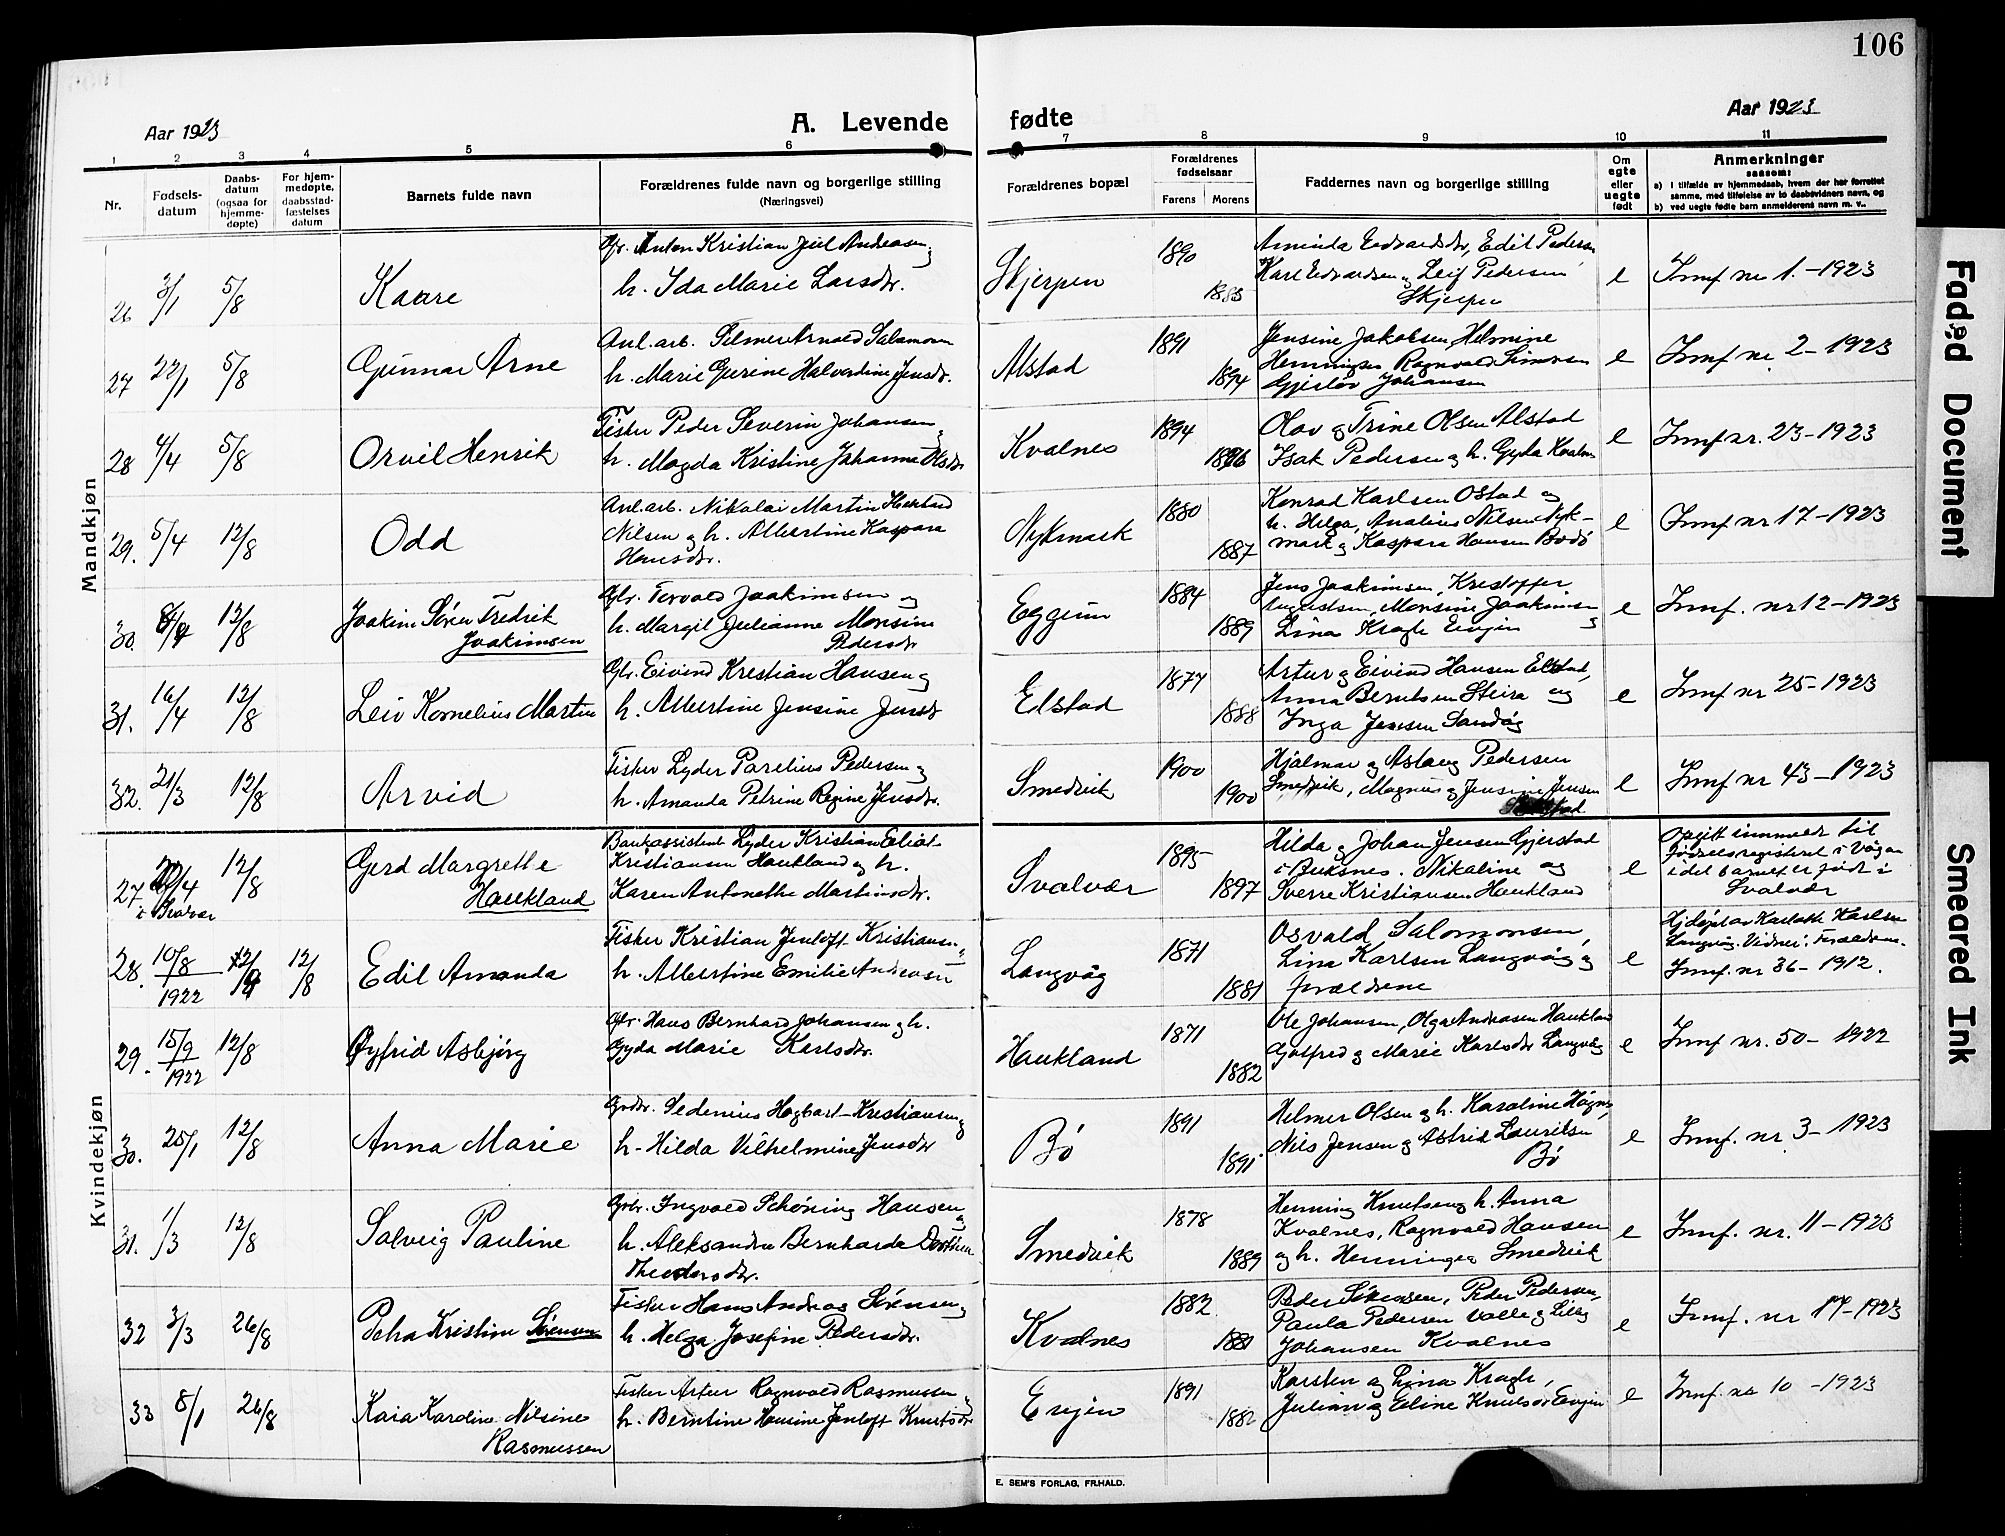 106
Aar 1923
A. Levende
fødte
Aar 1923
1 2 3 4 5 6 7 8 9 10 11
Nr.
Fødsels-
datum
Daabs-
datum
(ogsaa for
hjemme-
døpte)
For hjem-
medøpte,
daabsstad-
fæstelses
datum
Barnets fulde navn
Forældrenes fulde navn og borgerlige stilling
(Næringsvei)
Forældrenes bopæl
Forældrenes
fødselsaar
Farens Morens
Faddernes navn og borgerlige stilling
Om
egte
eller
uegte
født
Anmerkninger
saasom:
a) i tilfælde av hjemmedaab, hvem der har forrettet
samme, med tilføielse av to daabsvidners navn, og
b) ved uegte fødte barn anmelderens navn m. v..
Mandkjøn
26 3/1 5/8 Kaare
Gbr. Anton Kristian Juul Andreasen og
h. Ida Marie Larsdtr.
Skjerpen 1890
Edvardsdtr, Edil Pedersen
Karl Edvardsen og Leif Pedersen
Skjerpen
e Innf nr 1. - 1923
27 22/1 5/8 Gunnar Arne
Anl. arb. Hilmer Arnold Salamonsen
h. Marie Gurine Halvardine Jensdtr.
Alstad 1891 1894
Jensine Jakobsen, Helmine
Henningsen Ragnvald Simonsen
Johansen
e Innf nr 2 - 1923
28 4/4 5/8 Orvil Henrik
Fisker Peder Severin Johansen og
h. Magda Kristine Johanna Olsdtr
Kvalnes 1894
Olav og Trine Olsen Alstad
Isak Pedersen og h. Gyda Kvalnes
e Innf nr. 23 - 1923
29. 5/4 12/8 Odd
Anl. arb. Nikolai Martin
Nilsen og h. Albertine Kaspara
Hansdtr.
Nykmark 1880 1887
Konrad Karlsen Ostad og
h. Helga, Analius Nilsen Nyk-
mark og Kaspara Hansen Bodø
e Innf nr 17 - 1923
30. 12/8 Joakim Sören Fredrik
Joakimsen
Gbr. Torvald Joakimsen og
h. Margit Julianne Monsine
Pedersdtr
Eggum 1884 1889
Jens Joakimsen, Kristoffer
Augustsen, Monsine Joakimsen og
Lina Kragh Evjen
e Innf. nr 12 - 1923
31. 16/4 12/8 Leiv Kornelius Martin
Gbr. Eivind Krestian Hansen og
h. Albertine Jensine Jensdtr
Elstad 1877 1888
Artur og Eivind Hansen Elstad,
Anna Berntsen Steira og
Inga Jensen Sandøy
e Innf nr 25 - 1923
32. 21/3 12/8 Arvid
Fisker Lyder Parelius Pedersen og
h. Amanda Petrine Regine Jensdtr.
Smedvik 1900 1900
Hjalmar og Aslaug Pedersen
Smedvik, Magnus og Jensine Jensen
e Innf nr 43 - 1923
Kvindekjøn
27 12/8 Gerd Margrethe
Haukland
Bankassistent Lyder Kristian Eliot
Kristiansen Haukland og h.
Karen Antonethe Martinsdtr.
Svolvær 1895 1897
Hilda og Johan Jensen Gjerstad
i Buksnes. Nikoline og
Sverre Kristiansen Haukland
e Opgitt innmeldt til
fødselsregistret i Vågan
idet barnet er født i
Svolvær
28. 10/8
1922 12/8 Edil Amanda
Fisker Kristian Jentoft Kristiansen og
h. Albertine Emilie Andreasen
Langvåg 1871 1881
Osvald Salomonsen,
Lina Karlsen Langvåg og
foreldrene
e Hjdøpt av Karlotte Karlsen
Langvåg. Vidner: Foreldrene.
Innf. nr 36 - 1912.
29. 15/9
1922 12/8 Øyfrid Asbjørg
Gbr. Hans Bernhard Johansen og h.
Gyda Marie Karlsdtr.
Haukland 1871 1882
Ole Johansen, Olga Andreasen Haukland
Gotfred og Marie Karlsdtr Langvåg
e Innf nr. 50 - 1922
30. 25/1 12/8 Anna Marie
Gbr. Sedenius Hagbart Kristiansen og
h. Hilda Vilhelmine Jensdtr
Bø 1891 1891
Helmer Olsen og h. Karoline Høgnes,
Nils Jensen og Astrid Lauritsen
Bø
e Innf. nr 3 - 1923
31. 1/3 12/8 Solveig Pauline
Gbr. Ingvald Schøning Hansen og
h. Aleksandra Bernharda Dorthea
Theodorsdtr.
Smedvik 1878 1889
Henning Knutsen og h. Anna
Kvalnes, Ragnvald Hansen
og h. Henninge Smedvik
e Innf. nr. 11 - 1923
32 3/3 26/8 Petra Kristine Sørensen
Fisker Hans Andreas Sörensen og
h. Helga Josefine Pedersdtr.
Kvalnes 1882 1881
Peder Sörensen, Peder Pedersen,
Paula Pedersen Valle og Lilly
Johansen Kvalnes
e Innf. nr 17 - 1923
33 8/1 26/8 Kaia Karoline Nilsine
Rasmussen
Fisker Artur Ragnvald Rasmussen og
h. Berntine Hansine Jentoft Knutsdtr
Evjen 1891 1882
Karsten og Lina Kragh,
Julian og Eline Knutsdtr Evjen
e Innf. nr 10 - 1923
E. SEM'S FORLAG, FR.HALD.
Faded Document
Smeared Ink